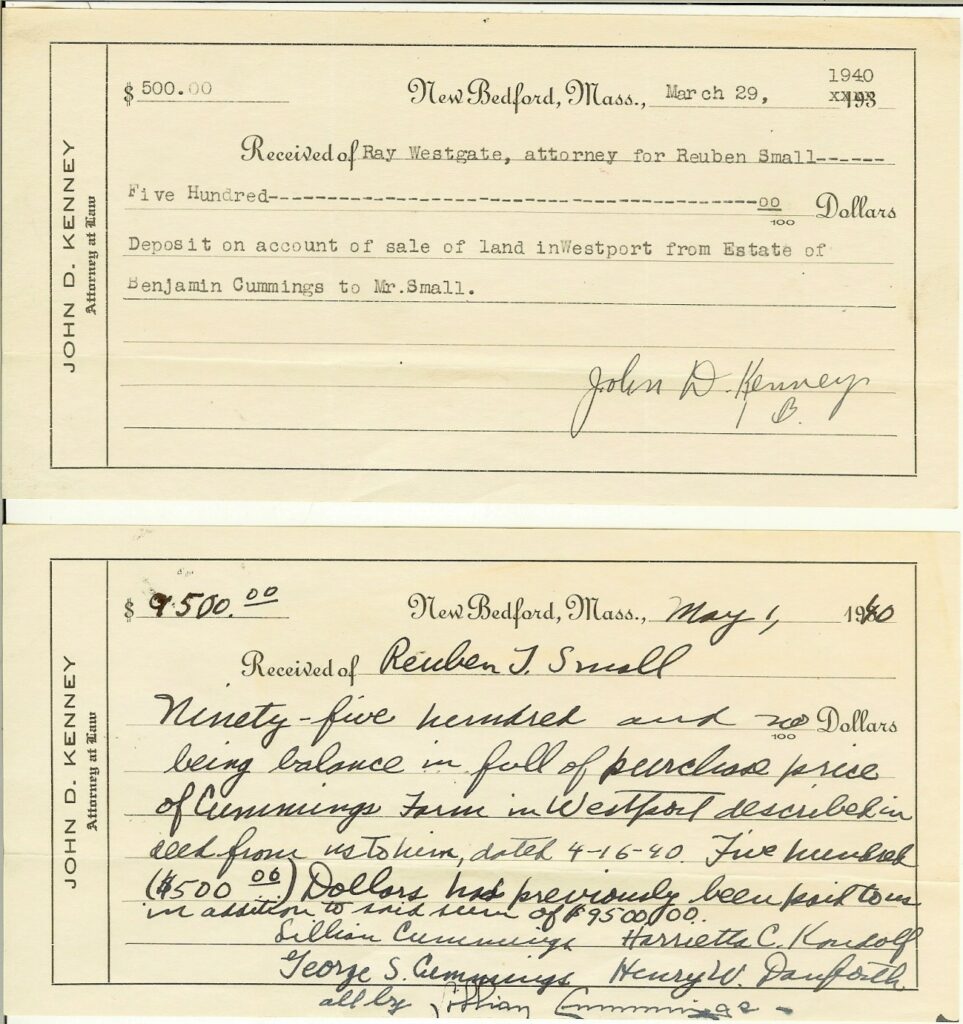 JOHN D. KENNEY
Attorney at Law
$ 500.00 New Bedford, Mass., March 29, 1940
xxxx193
Received of Ray Westgate, attorney for Reuben Small------
Five Hundred------------------------------------------00/100 Dollars
Deposit on account of sale of land inWestport from Estate of
Benjamin Cummings to Mr.Small.
John D. Kenney
B.
JOHN D. KENNEY
Attorney at Law
$ 9500.00 New Bedford, Mass., May 1, 1940
Received of Reuben T. Small
Ninety-five hundred and no/100 Dollars
being balance in full of purchase price
of Cummings Farm in Westport described in
deed from us to him, dated 4-16-40. Five hundred
($500 00) Dollars has previously been paid to us
in addition to said sum of $9500.00.
Lillian Cummings Harrietta C. Kondolf
George S. Cummings Henry W. Danforth
all by Lillian Cummings